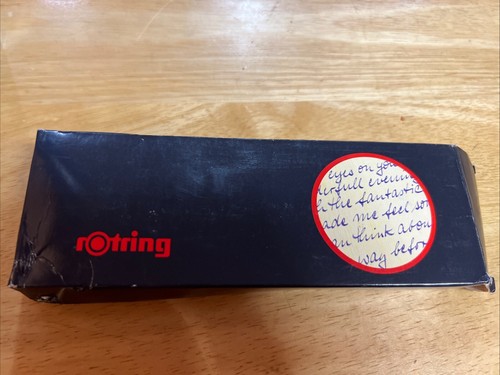 rotring
eyes on you
erfull evening
h the fantastic
ade me feel sor
an think abou
way befor